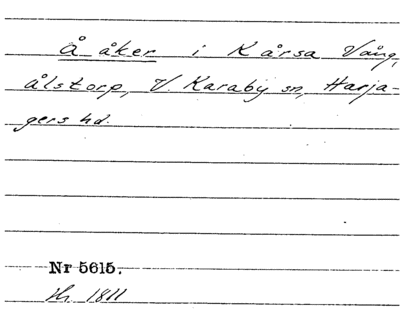 Å åker i Kårsa Vång,
ålstorp, V. Karaby sn, Harja-
gers hd.
Nr 5615.
1811